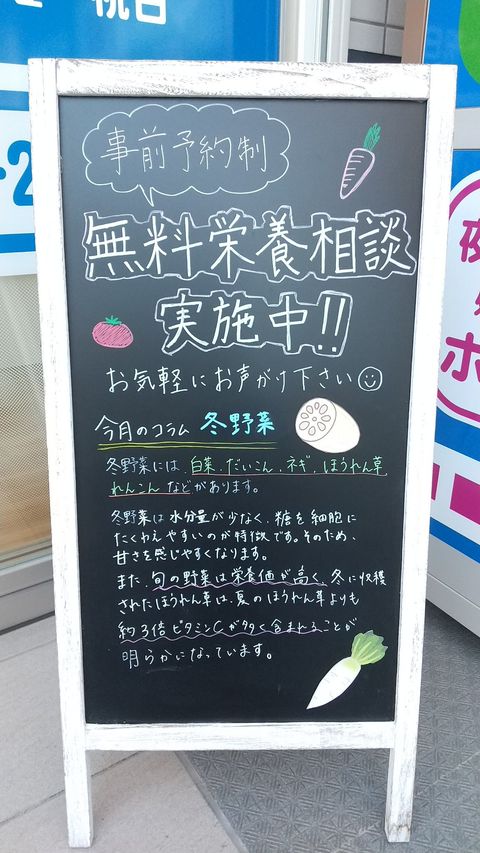 祝日
事前予約制
無料栄養相談
実施中!!
お気軽にお声がけ下さい
今月のコラム 冬野菜
冬野菜には、白菜、だいこん、ネギ、ほうれん草
れんこん などがあります。
冬野菜は水分量が少なく、糖を細胞に
たくわえやすいのが特徴です。そのため、
甘さを感じやすくなります。
また、旬の野菜は栄養価が高く、冬に収穫
されたほうれん草は、夏のほうれん草よりも
約3倍ビタミンCが多く含まれることが
明らかになっています。
夜
ホ